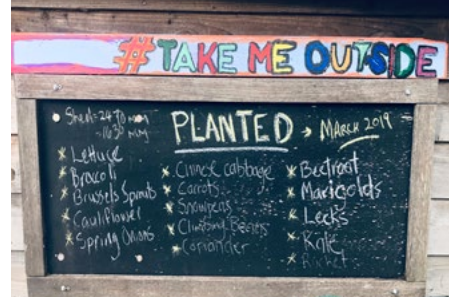 #TAKE ME OUTSIDE
Shed=2470 mm
~1630 mm
PLANTED → MARCH 2019
* Lettuce
* Brocoli
* Brussels Sprouts
* Cauliflower
* Spring Onions
* Chinese cabbage
* Carrots
* Snowpeas
* Climbing Beans
* Coriander
* Beetroot
* Marigolds
* Leeks
* Kale